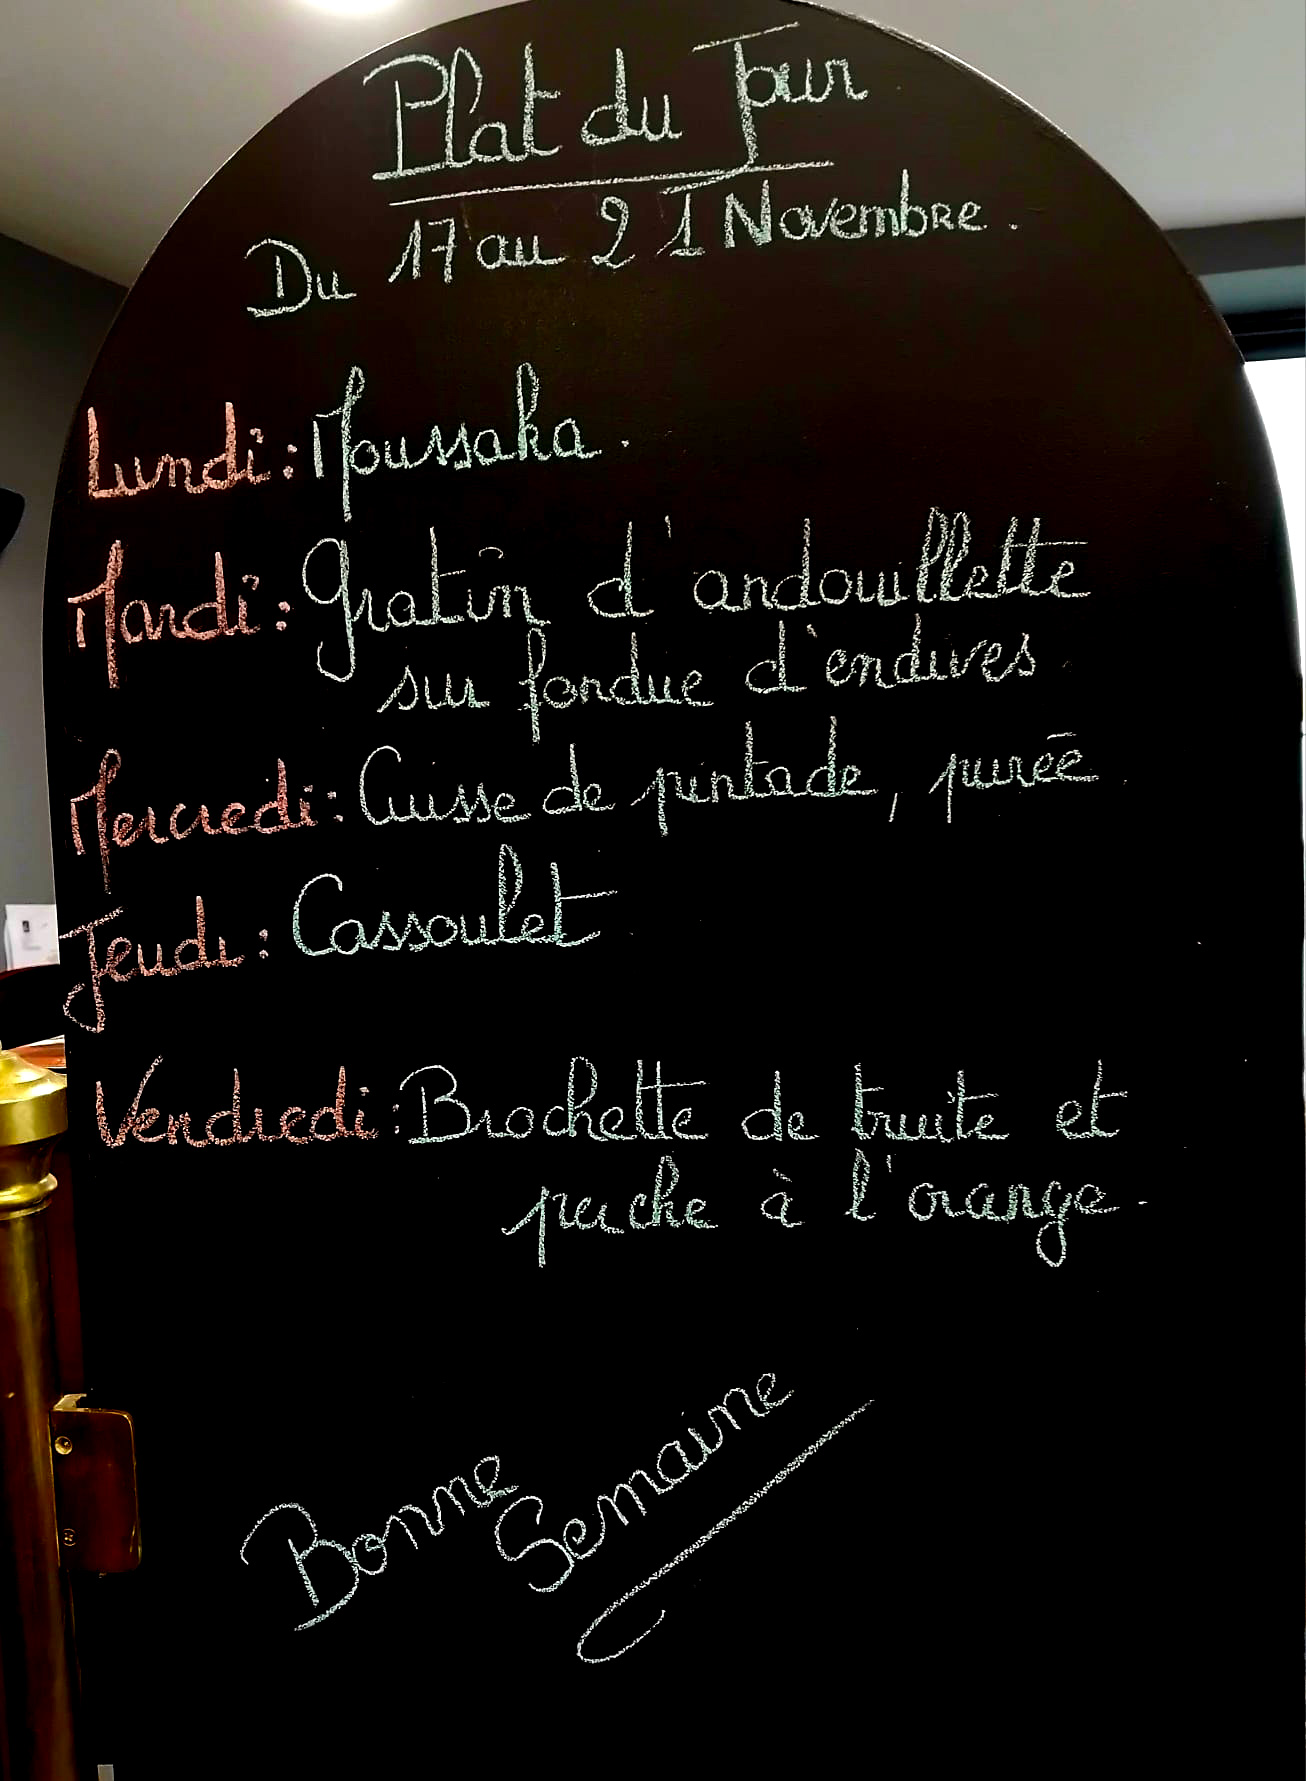 Plat du Jour
Du 17 au 21 Novembre.
Lundi : Moussaka.
Mardi : Gratin d'andouillette
sur fondue d'endives.
Mercredi : Cuisse de pintade, purée.
Jeudi : Cassoulet.
Vendredi : Brochette de truite et
perche à l'orange.
Bonne
Semaine